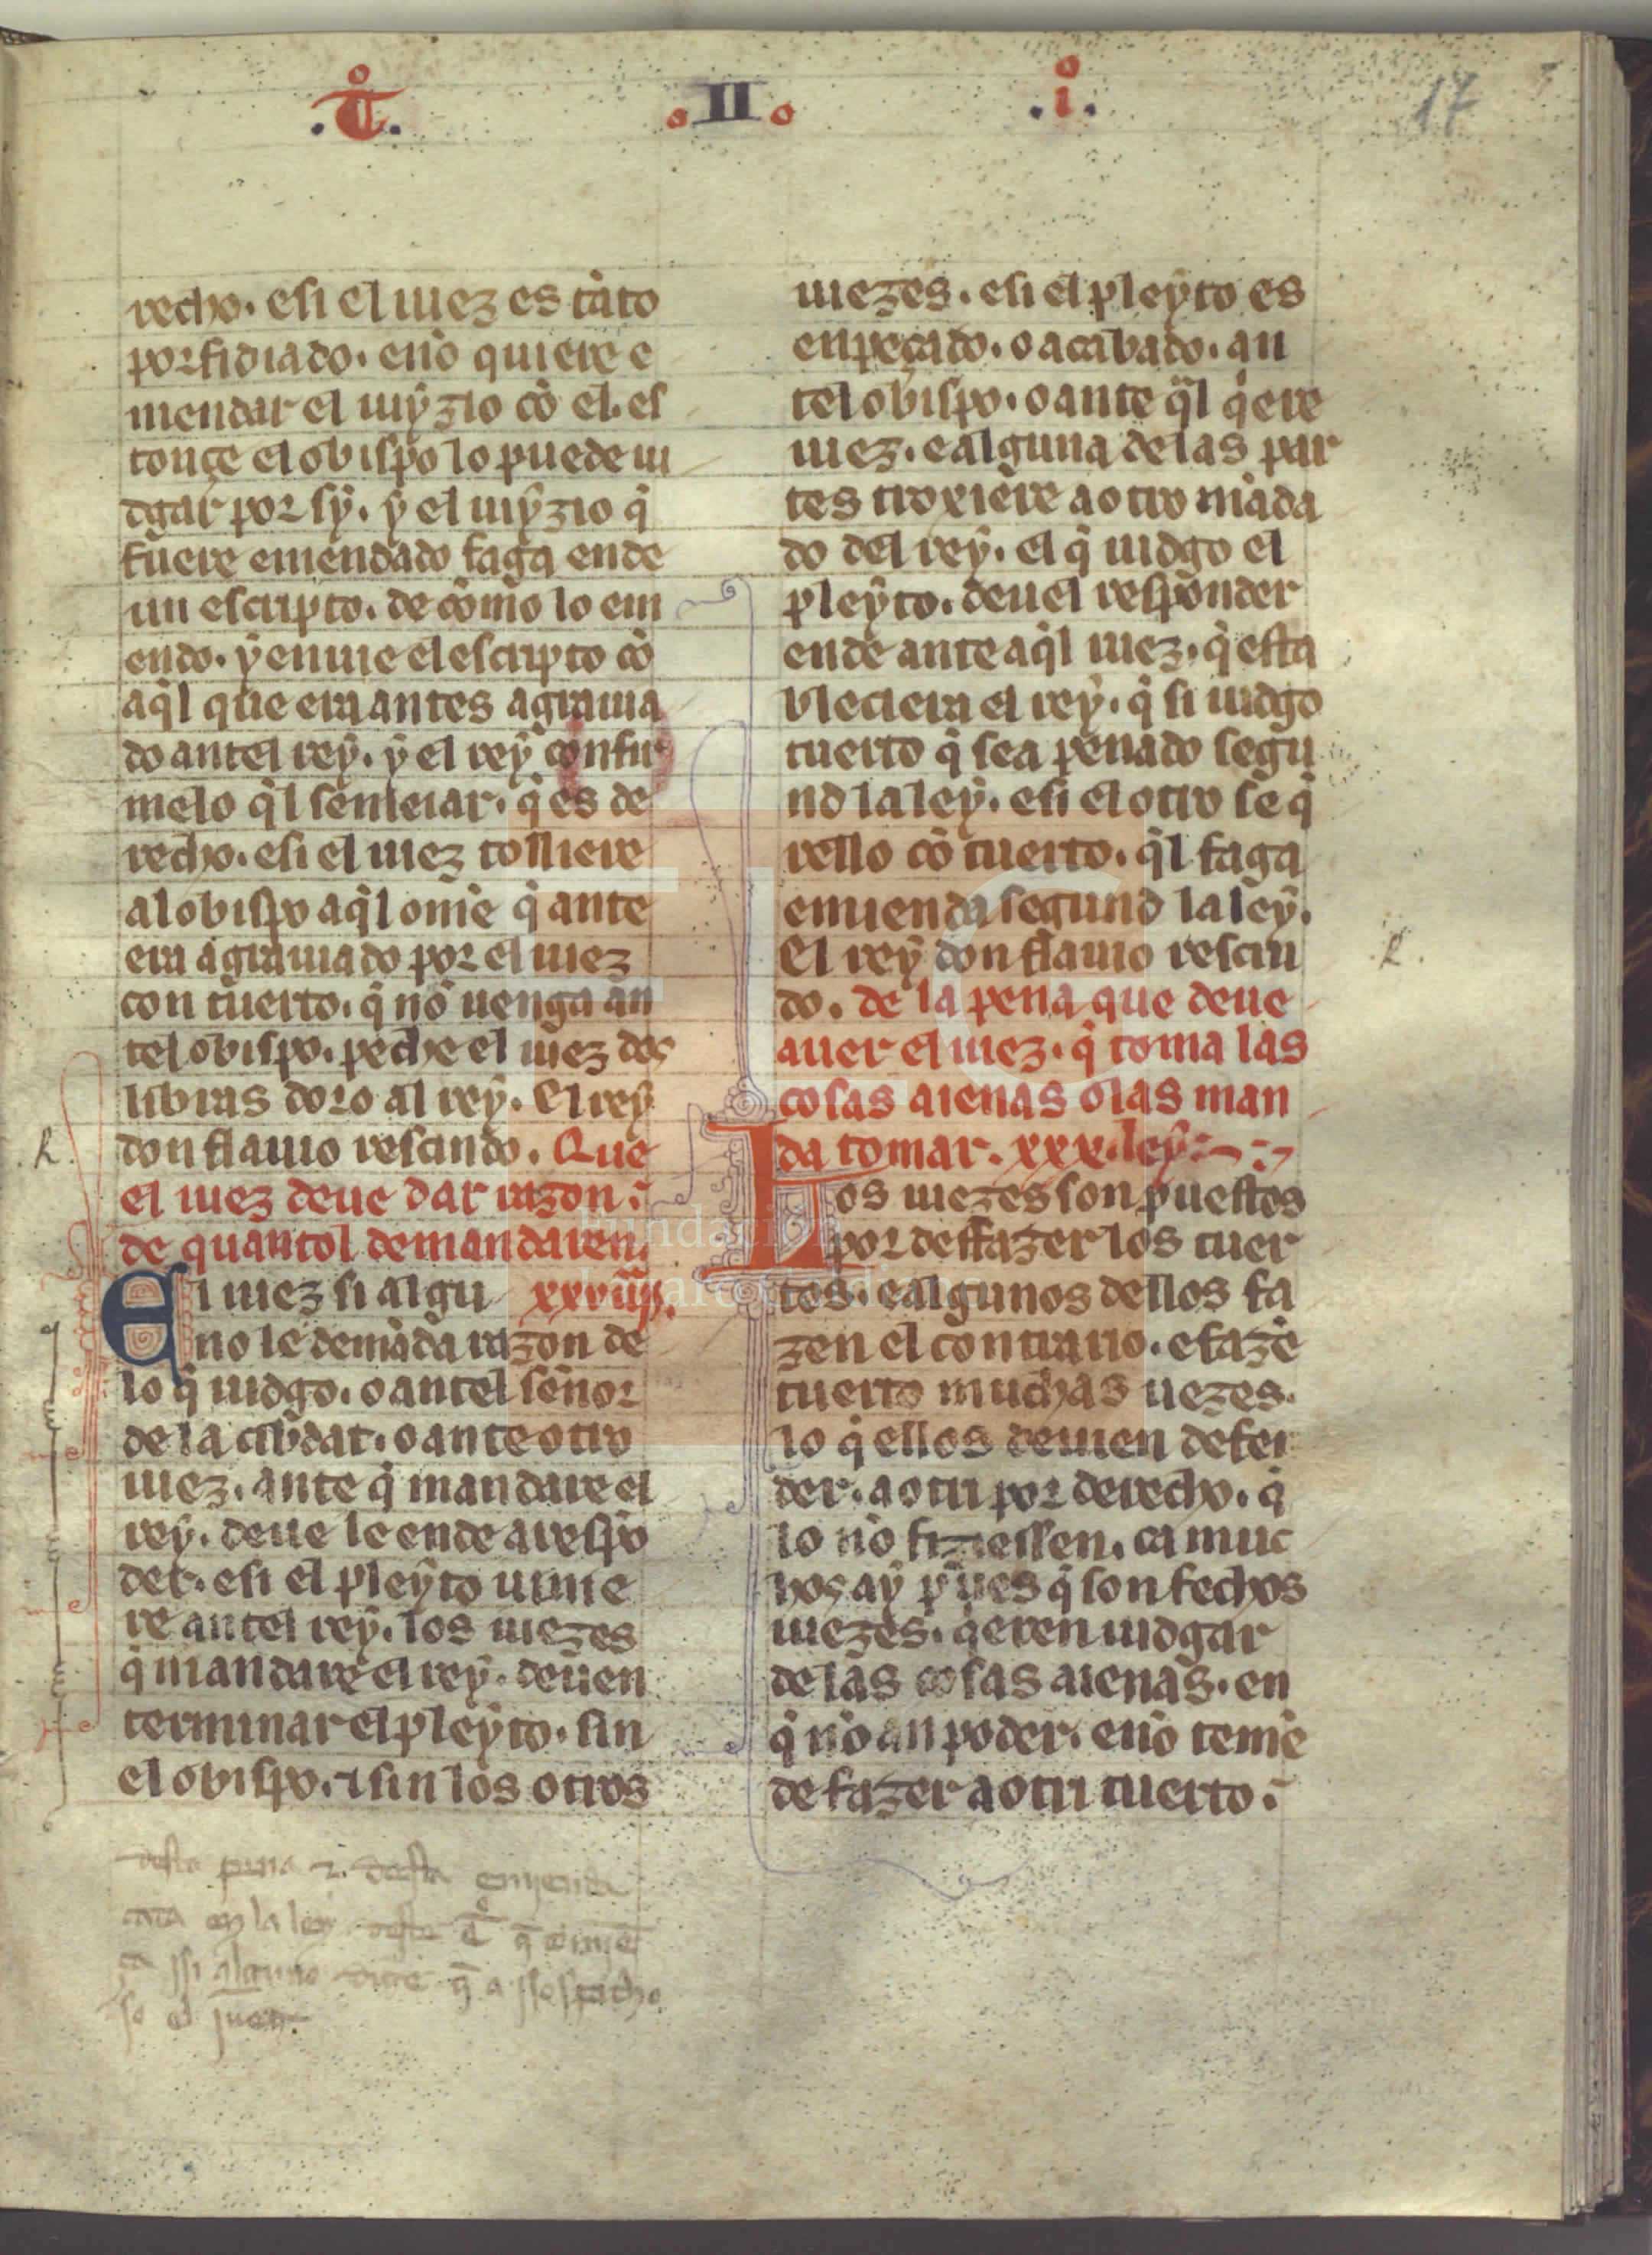 .T̊.
.II.
.i̊.
17
recho. esi el iuez es tãto
porfidiado. enõ quiere e
mendar el iuyzio cõ el. es
tonçe el obispo lo puede iu
dgar por sy. y el iuyzio q̃
fuere emendado faga ende
un escripto. de cõmo lo em
endo. y enuie el escripto cõ
aq̃l que era antes agrauia
do antel rey. y el rey confir
melo q̃l semeiar. q̃ es de
recho. esi el iuez tolliere
al obispo aq̃l omẽ q̃ ante
era agrauiado por el iuez
con tuerto. q̃ nõ uenga an
tel obispo. peche el iuez dos
libras doro al rey. El rey
don flauio rescindo. Que
el iuez deue dar razon
de quantol demandaren.
El iuez si algu xxviiij.
no le demãda razon de
lo q̃ iudgo. o antel señor
de la cibdat. o ante otro
iuez. ante q̃ mandare el
rey. deue le ende a respõ
der. esi el pleyto uinie
re antel rey. los iuezes
q̃ mandare el rey. deuen
terminar el pleyto. sin
el obispo. ⁊ sin los otros
desta pena ⁊ desta emienda
cata en la ley
si alguno dize q̃ a
so el juez.
iuezes. esi el pleyto es
enpeçado. o acabado. an
tel obispo. o ante q̃l q̃ere
iuez. e alguna de las par
tes troxiere a otro mãda
do del rey. el q̃ iudgo el
pleyto. deuel responder
ende ante aq̃l iuez. q̃ esta
bleciera el rey. q̃ si iudgo
tuerto q̃ sea penado segu
nd la ley. esi el otro se q̃
rello cõ tuerto. q̃l faga
emienda segund la ley.
El rey don flauio rescin
do. de la pena que deue
auer el iuez. q̃ toma las
cosas aienas o las man
da tomar. xxx. ley
Los iuezes son puestos
por deffazer los tuer
tos. e algunos dellos fa
zen el contrario. e fazẽ
tuerto muchas uezes.
lo q̃ ellos deuien defen
der. a otri por derecho. q̃
lo nõ fiziessen. ca muc
hos ay pues q̃ son fechos
iuezes. q̃eren iudgar
de las cosas aienas. en
q̃ nõ an poder. enõ temẽ
de fazer a otri tuerto.
.R.
.R.
FLG
Fundación
Lázaro Galdiano